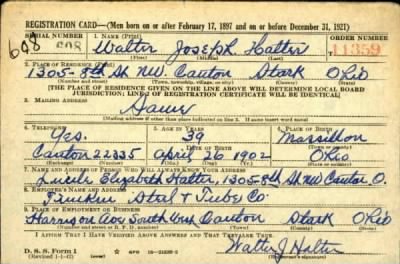 REGISTRATION CARD—(Men born on or after February 17, 1897 and on or before December 31, 1921)
SERIAL NUMBER 1. NAME (Print) ORDER NUMBER
608 608 Walter Joseph Halter 11359
(First) (Middle) (Last)
2. PLACE OF RESIDENCE (Print)
1305-8th St NW. Canton Stark Ohio
(Number and street) (Town, township, village, or city) (County) (State)
[THE PLACE OF RESIDENCE GIVEN ON THE LINE ABOVE WILL DETERMINE LOCAL BOARD
JURISDICTION; LINE 2 OF REGISTRATION CERTIFICATE WILL BE IDENTICAL]
3. MAILING ADDRESS
Same
[Mailing address if other than place indicated on line 2. If same insert word same]
4. TELEPHONE 5. AGE IN YEARS 6. PLACE OF BIRTH
Yes. 39 Massillon
DATE OF BIRTH
Canton 22335 April 26 1902 Ohio
(Exchange) (Number) (Mo.) (Day) (Yr.) (State or country)
7. NAME AND ADDRESS OF PERSON WHO WILL ALWAYS KNOW YOUR ADDRESS
Elizabeth Halter, 1305-8th St NW Canton O.
8. EMPLOYER'S NAME AND ADDRESS
Timken Steel & Tube Co.
9. PLACE OF EMPLOYMENT OR BUSINESS
Harrison Ave South West Canton Stark Ohio
(Number and street or R. F. D. number) (Town) (County) (State)
I AFFIRM THAT I HAVE VERIFIED ABOVE ANSWERS AND THAT THEY ARE TRUE.
D. S. S. Form 1
(Revised 1-1-42) (over)
Walter J Halter
(Registrant's signature)